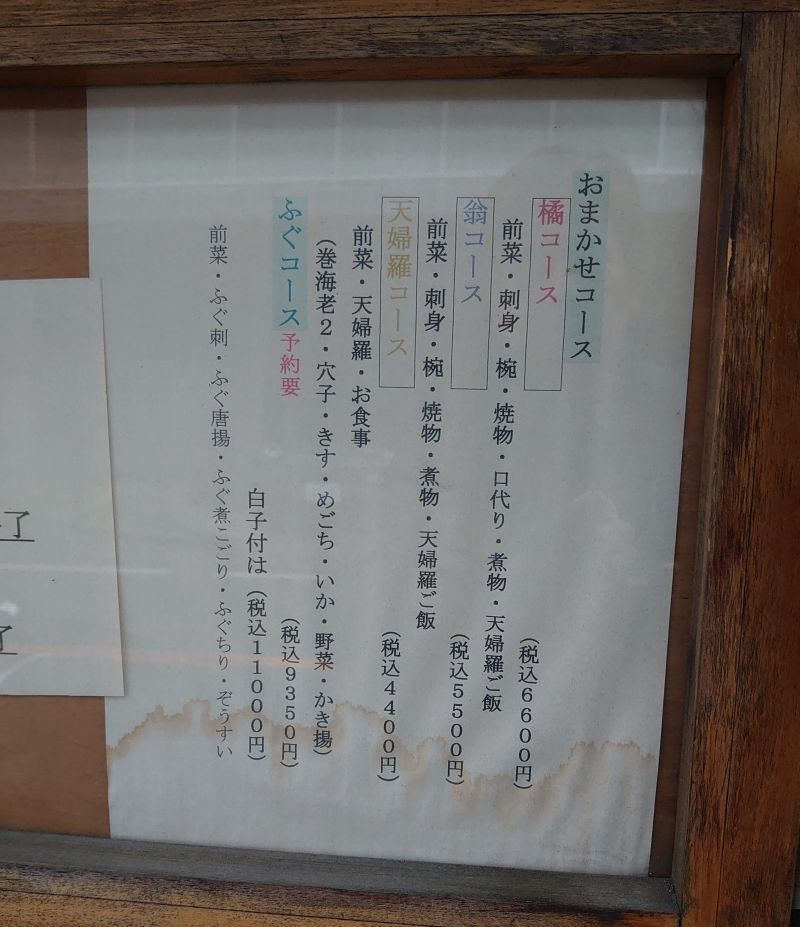 おまかせコース
橘コース
(税込6600円)
前菜・刺身・椀・焼物・口代り・煮物・天婦羅ご飯
翁コース
(税込5500円)
前菜・刺身・椀・焼物・煮物・天婦羅ご飯
天婦羅コース
(税込4400円)
前菜・天婦羅・お食事
(巻海老2・穴子・きす・めごち・いか・野菜・かき揚)
ふぐコース予約要
(税込9350円)
白子付は(税込11000円)
前菜・ふぐ刺・ふぐ唐揚・ふぐ煮こごり・ふぐちり・ぞうすい
了
了